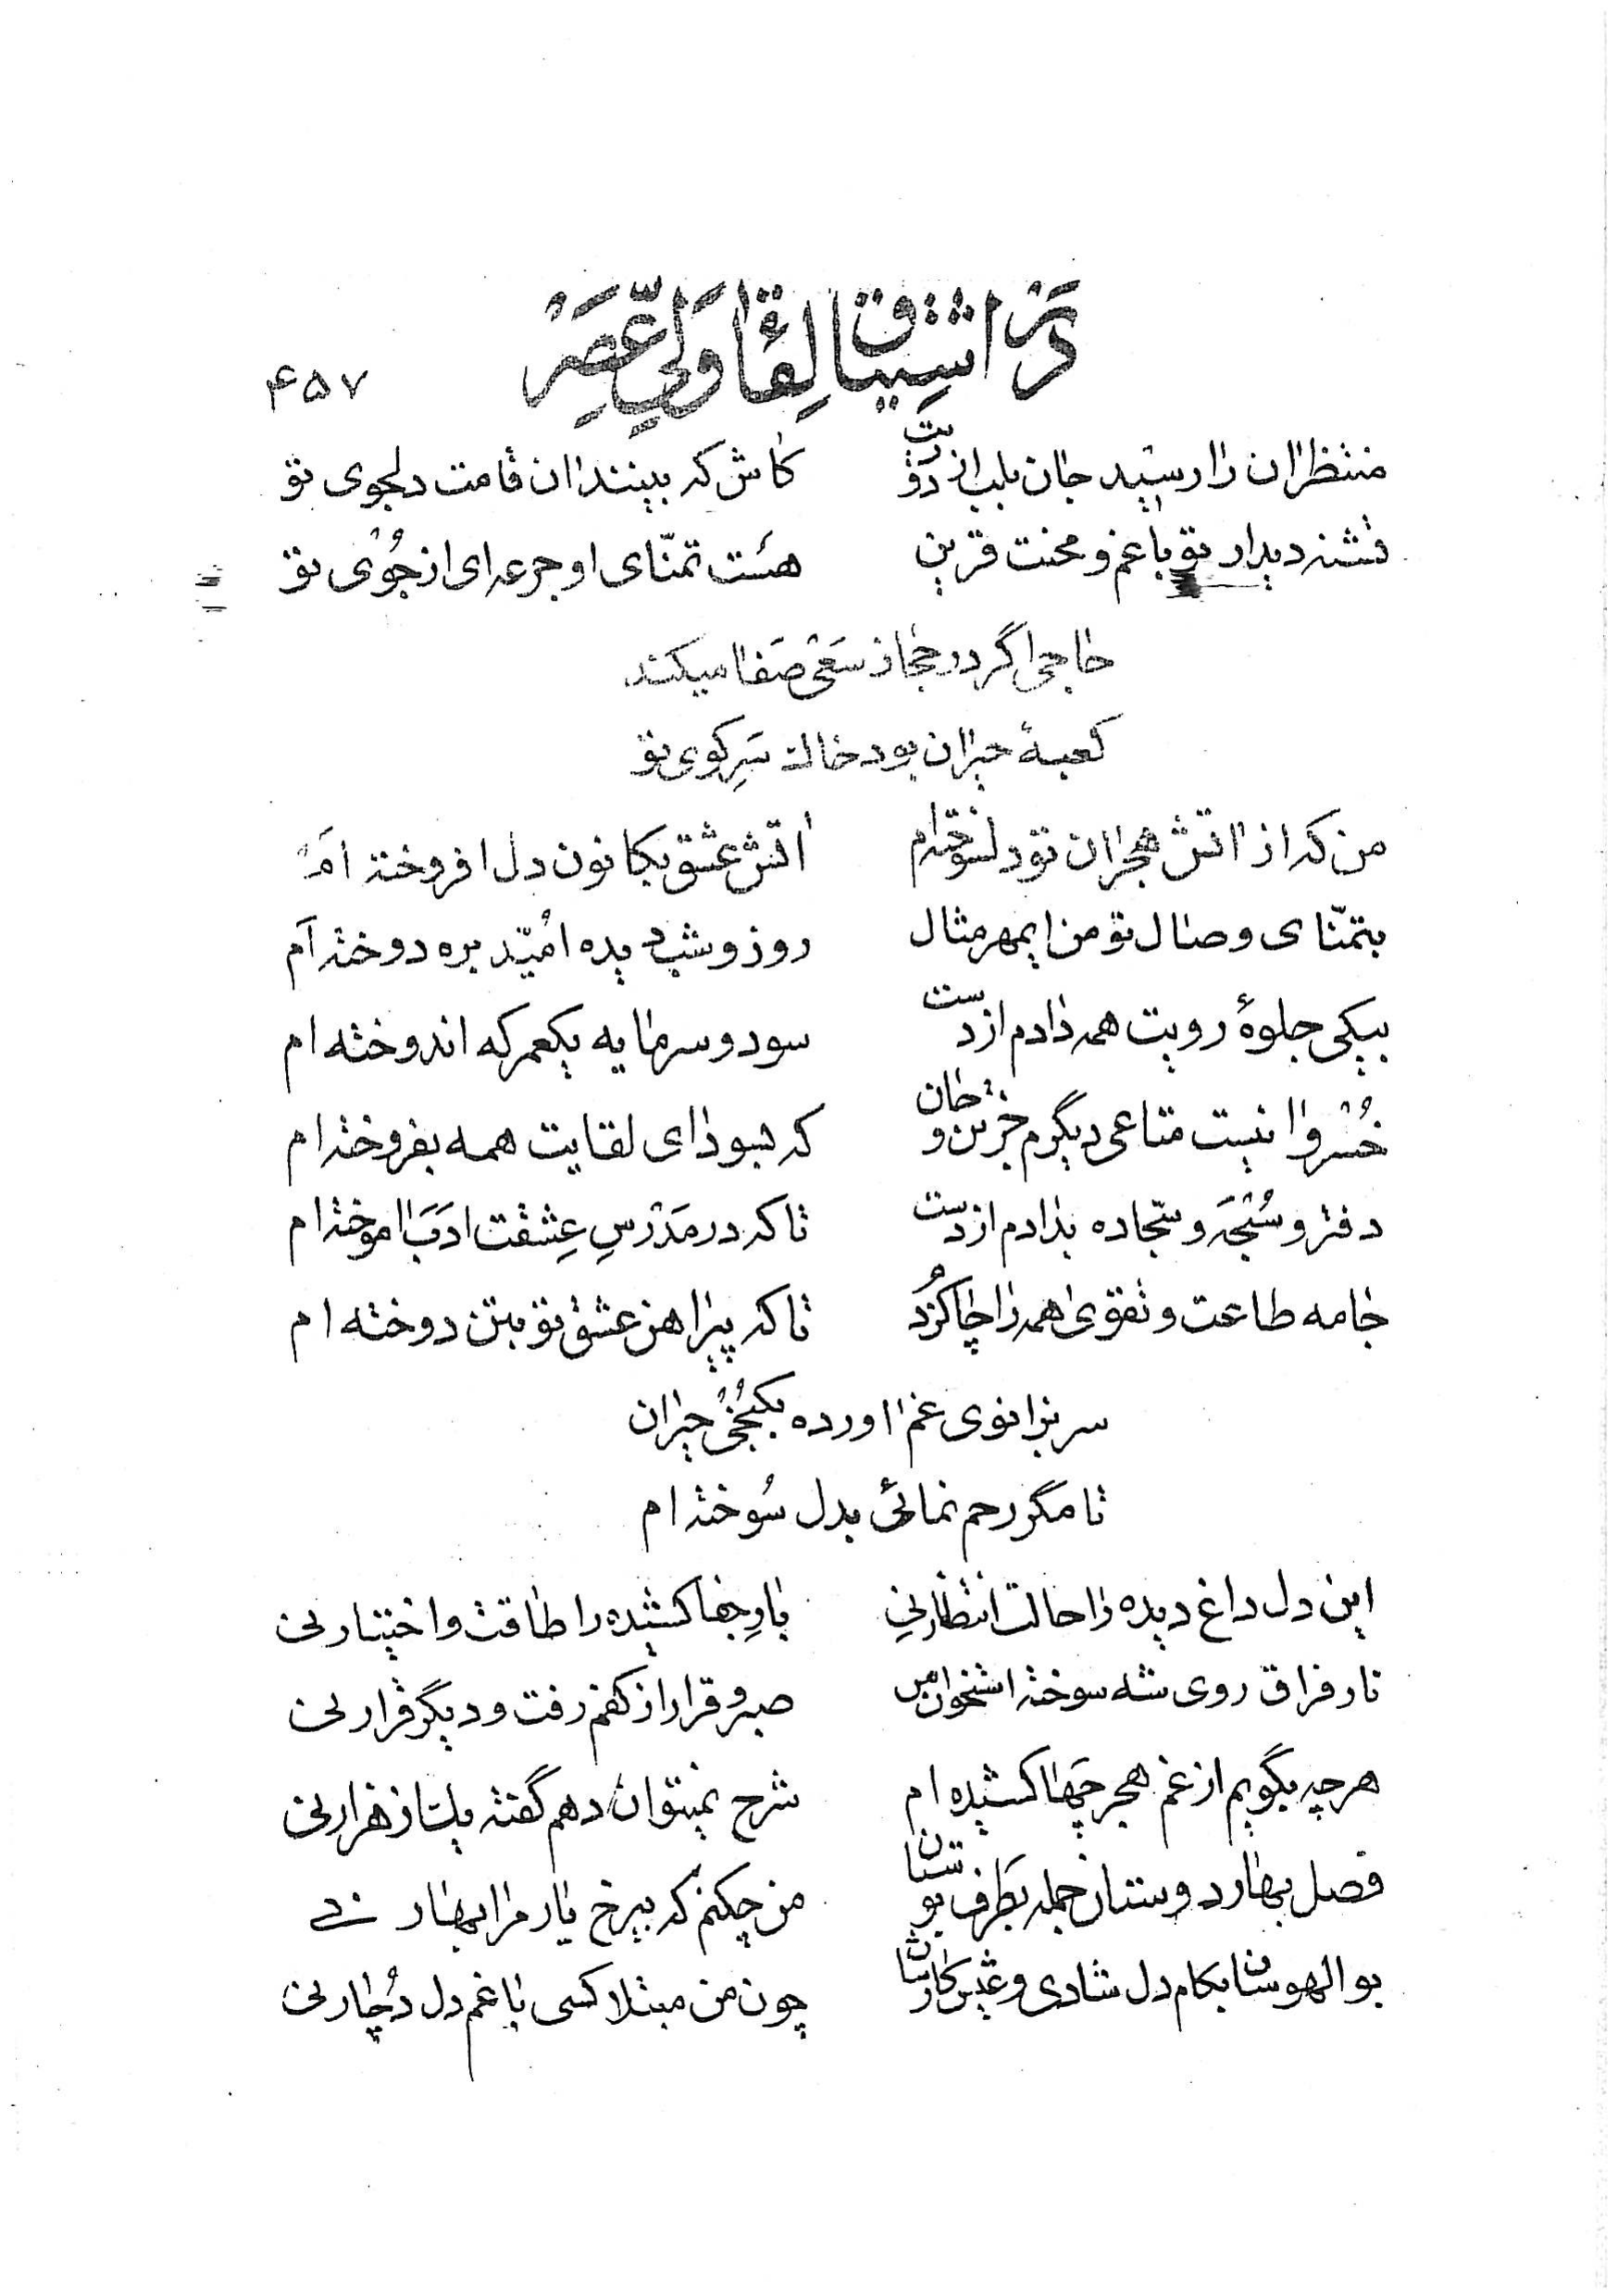 در اشتیاق لقاء ولیّ عصر
۴۵۷
منتظران را رسید جان بلب از دوریت کاش که ببینند ان قامت دلجوی تو
تشنه دیدار تو با غم و محنت قرین هست تمنّای او جرعه ای از جُوی تو
حاجی اگر در حجاز سَعْی صَفا میکند
کعبهٔ حیران بود خاک سَرِکوی تو
من که از اتش هجران تو دلسوخته ام اتش عشق بکانون دل افروخته ام
بتمنّای وصال تو من ایمهر مثال روز و شب دیده امُیّد بره دوخته ام
بیکی جلوهٔ رویت همه دادم از دست سود و سرمایه یکعمر که اندوخته ام
خُسْروا نیست متاعی دیگرم جز تن و جان که بسودای لقایت همه بفروخته ام
دفتر و سُبْحَه و سجّاده بدادم از دست تا که در مَدْرَسِ عِشقت ادَبَ اموخته ام
جامه طاعت و تقوی همه را چاک زُد تا که پیراهن عشق تو بتن دوخته ام
سر بزانوی غم اورده بکُنجی حیران
تا مگر رحم نمائی بدل سُوخته ام
این دل داغ دیده را حالت انتظار نی بارِ جفا کشیده را طاقت و اختیار نی
نار فراق روی شه سوخته استخوان من صبر و قرار از کفم رفت و دیگر قرار نی
هر چه بگویم از غم هجر چَها کشیده ام شرح نمیتوان دهم گفته یک از هزار نی
فصل بهار دوستان جمله بَطَرف بوستان من چکنم که بیرخ یار مرا بهار نی
بوالهوسان بکام دل شادی و عیش کارشان چون من مبتلا کسی با غم دل دُچار نی